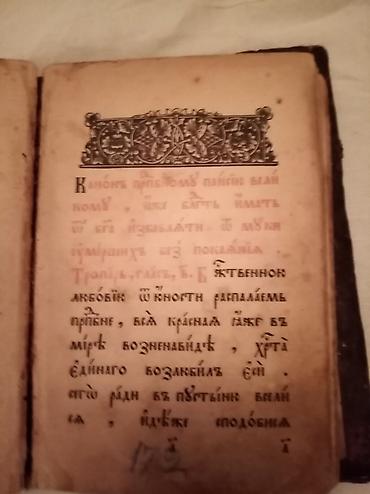 Канѡнъ прпⷣбному паисїю вели
кому, иже блгⷣть имать
ѿ бг҃а избавляти ѿ муки
умершихъ без̾ покаянїя.
Тропарь, гласъ, в҃. Бжⷭ҇твенною
любовїю ѿ юности распалаемь
прпⷣбне, вся красная ꙗже въ
мирѣ возненавидѣ, хрⷭ҇та
единаго возлюбилъ еси.
сегѡ ради въ пустыню всели
ся, идѣже сподобися
а҃ а҃
172